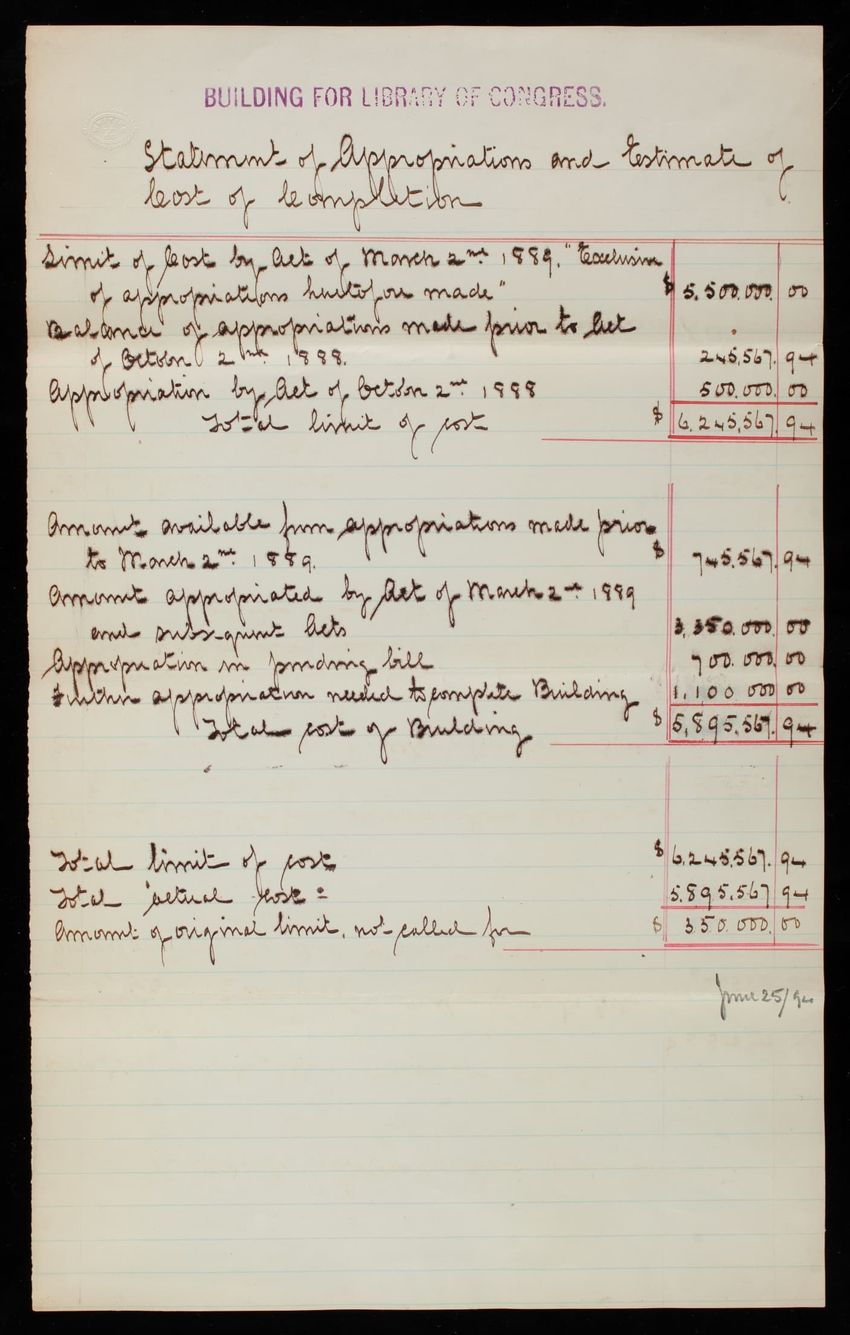 BUILDING FOR LIBRARY OF CONGRESS.
Statement of Appropriations and Estimate of
Cost of Completion
Limit of Cost by Act of March 2nd 1889, "Exclusive
of appropriations heretofore made" $ 5,500,000. 00
Balance of appropriations made prior to Act
of October 2nd 1888. 245,567. 94
Appropriation by Act of October 2nd 1888 500,000. 00
Total limit of cost $ 6,245,567. 94
Amount available from appropriations made prior
to March 2nd 1889. $ 745,567. 94
Amount appropriated by Act of March 2nd 1889
and subsequent Acts 3,350,000. 00
Appropriation in pending bill 700,000. 00
Further appropriation needed to complete Building 1,100,000 00
Total cost of Building $ 5,895,567. 94
Total limit of cost $ 6,245,567. 94
Total actual cost = 5,895,567 94
Amount of original limit, not called for $ 350,000. 00
June 25/94